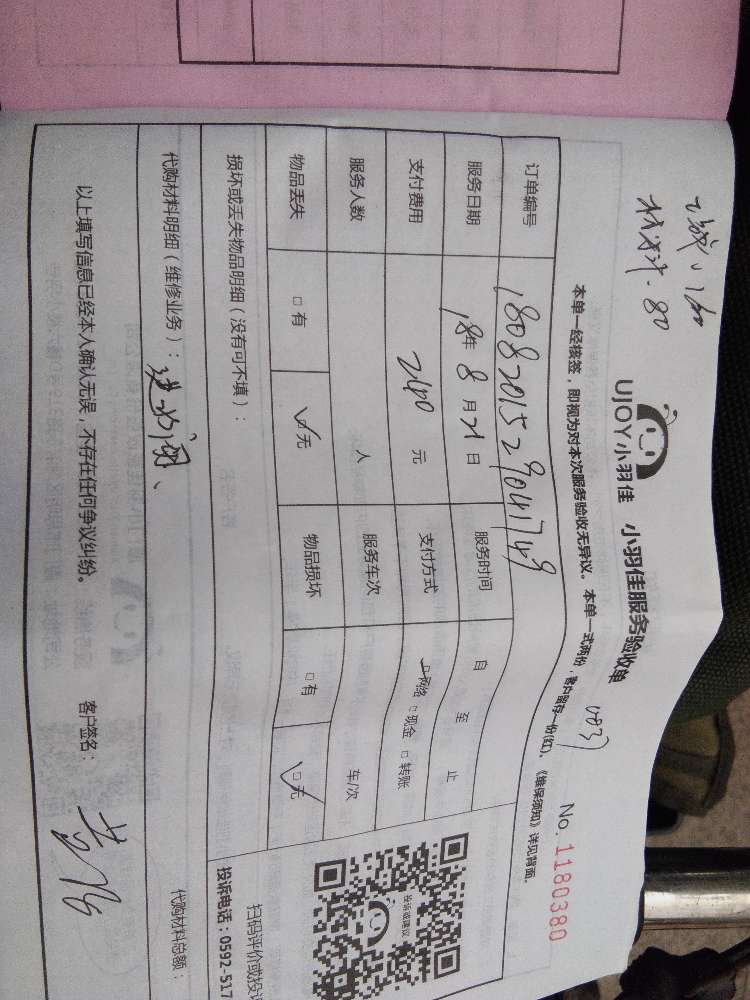 材料 - 80
UJOY小羽佳 小羽佳服务验收单 No. 1180380
本单一经核签，即视为对本次服务验收无异议。本单一式两份，客户留存一份(红)、《维保须知》详见背面.
订单编号
服务日期 18年 8 月 21 日 服务时间 自 至 止
支付费用 240 元 支付方式 网络 □现金 □转账
服务人数 人 服务车次 车/次
物品丢失 □有 ☑无 物品损坏 □有 ☑无
投诉或建议
扫码评价或投诉
投诉电话：0592-517
损坏或丢失物品明细（没有可不填）：
代购材料明细（维修业务）： 代购材料总额：
以上填写信息已经本人确认无误，不存在任何争议纠纷。 客户签名：